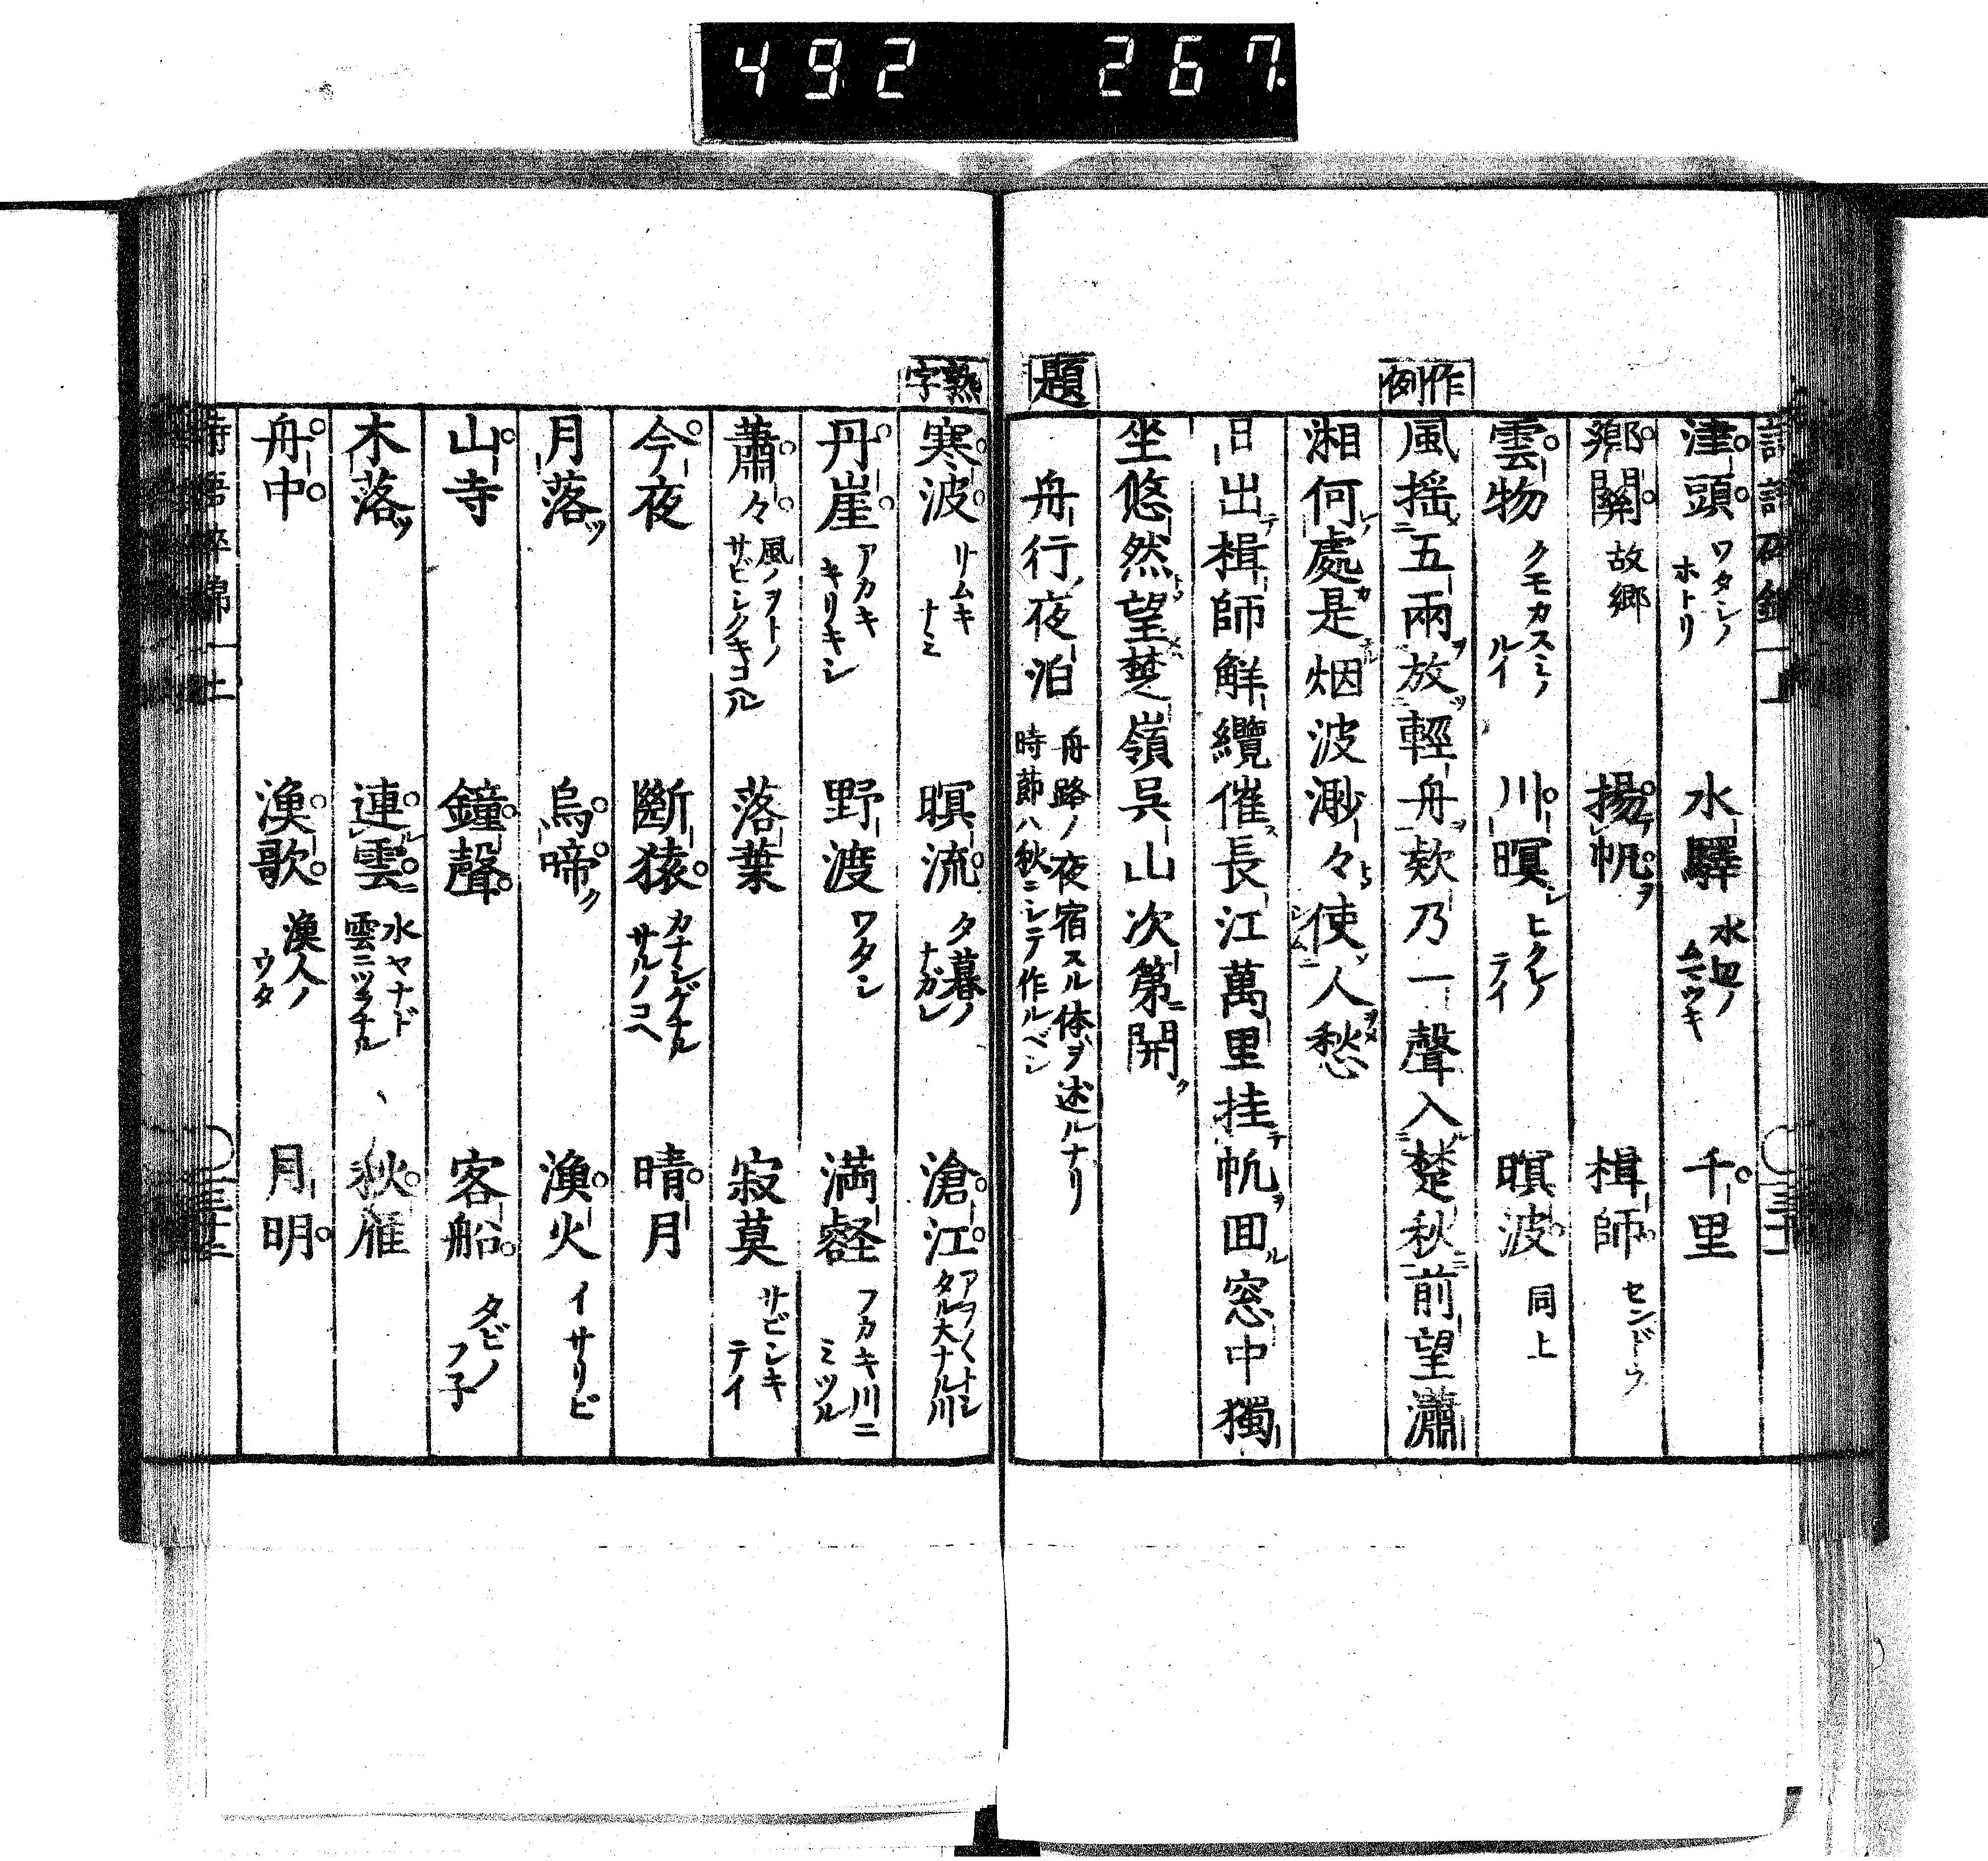 492 267.
津頭 ワタシノホトリ 水驛 水辺ノムマツキ 千里
郷關 故郷 揚帆ヲ 楫師 センドウ
雲物 クモカスミノルイ 川暝 ヒクレノテイ 暝波 同上
作例
風揺五兩放輕舟欸乃一聲入楚秋前望瀟
湘何處是烟波渺々使人愁
日出楫師解纜催長江萬里挂帆回窓中獨
坐悠然望楚嶺呉山次第開
題
舟行夜泊 舟路ノ夜宿スル体ヲ述ルナリ時節ハ秋ニシテ作ルベシ
熟字
寒波 サムキナミ 暝流 夕暮ノナガレ 滄江 タル大ナル川
丹崖 アカキキリキシ 野渡 ワタシ 満谿 フカキ川ニミツル
蕭々 風ノヲトノサビシクキコヘル 落葉 寂莫 サビシキテイ
今夜 斷猿 カナシゲナルサルノコヘ 晴月
月落ツ 烏啼ク 漁火 イサリビ
山寺 鐘聲 客船 タビノフ子
木落ツ 連雲 水ヤナドド雲ニツラナル 秋雁
舟中 漁歌 漁人ノウタ 月明